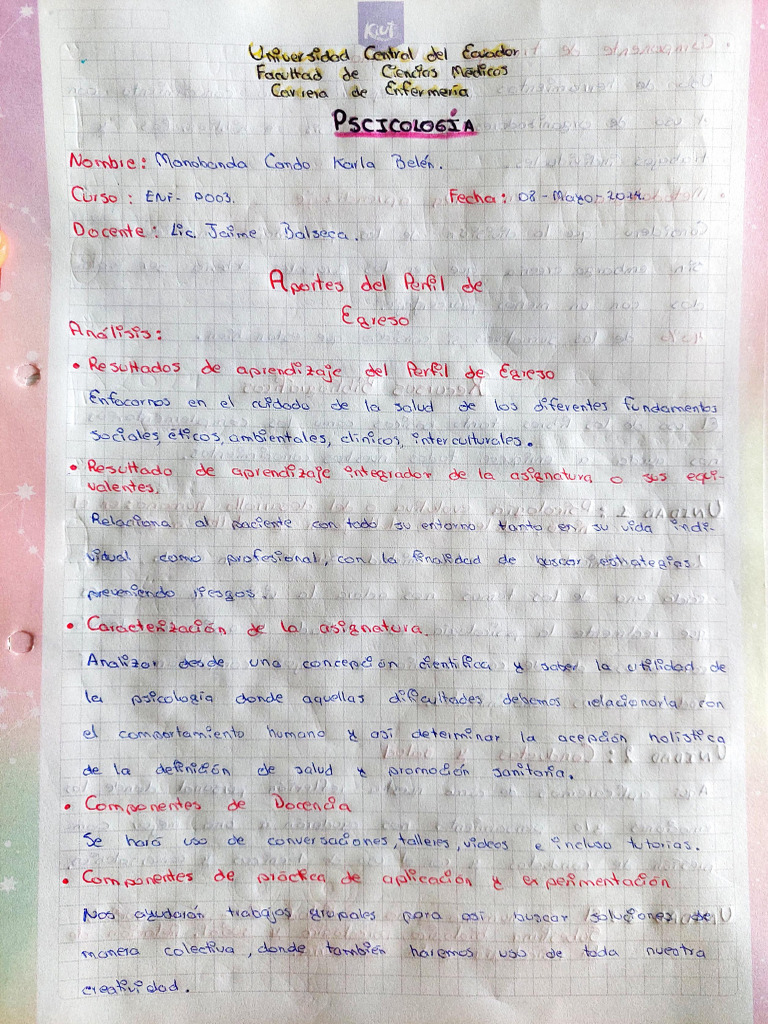 Kiut
Universidad Central del Ecuador
Facultad de Ciencias Médicas
Carrera de Enfermería
PSCICOLOGÍA
Nombre: Manobanda Cando Karla Belén.
Curso: ENF- P003.
Fecha: 08-Mayo-2024.
Docente: Lic. Jaime Balseca.
Aportes del Perfil de
Egreso
Análisis:
• Resultados de aprendizaje del Perfil de Egreso
Enfocarnos en el cuidado de la salud de los diferentes fundamentos
sociales, éticos, ambientales, clínicos, interculturales.
• Resultado de aprendizaje integrador de la asignatura o sus equi-
valentes.
Relaciona al paciente con todo su entorno tanto en su vida indi-
vidual como profesional, con la finalidad de buscar estrategias
preveniendo riesgos.
• Caracterización de la asignatura.
Analizar desde una concepción científica y saber la utilidad de
la psicología donde aquellas dificultades debemos relacionarla con
el comportamiento humano y así determinar la acepción holística
de la definición de salud y promoción sanitaria.
• Componentes de Docencia
Se hará uso de conversaciones, talleres, videos e incluso tutorias.
• Componentes de práctica de aplicación y experimentación
Nos ayudarán trabajos grupales para así buscar soluciones de
manera colectiva, donde también haremos uso de toda nuestra
creatividad.